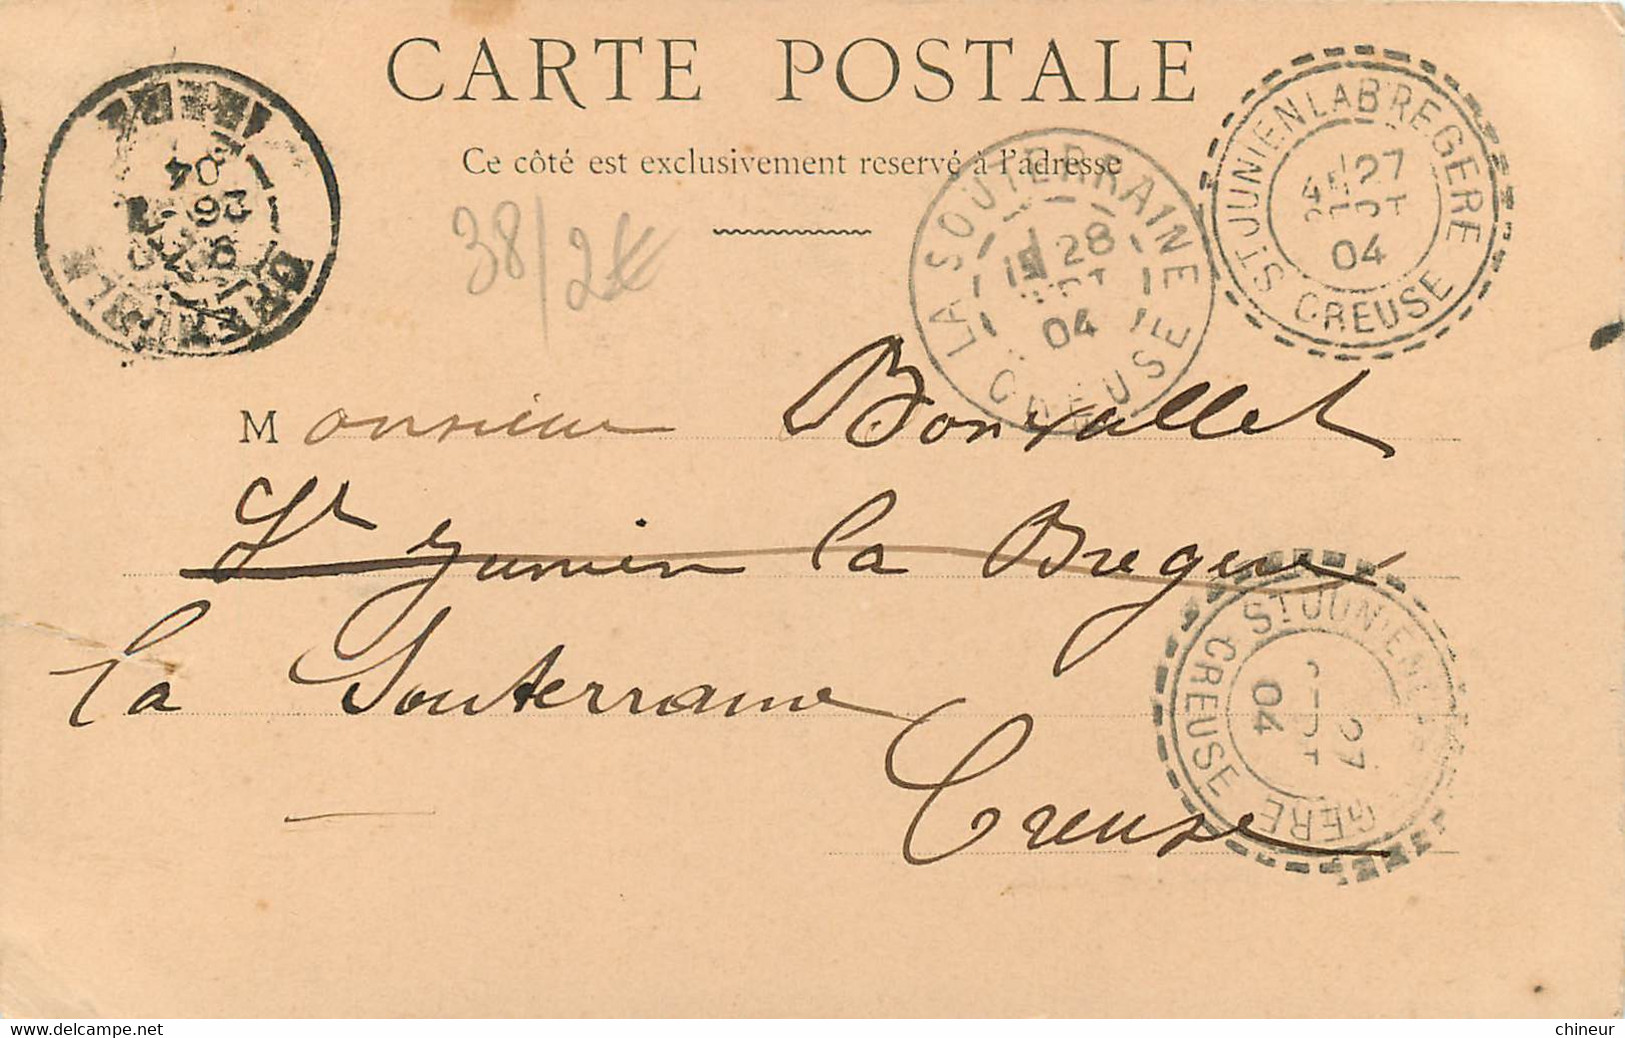 CARTE POSTALE
Ce côté est exclusivement reservé à l'adresse
38/2€
Monsieur Bonvallet
St Junien la Bregère
La Souterraine
Creuse
GRENOBLE
26
04
LA SOUTERRAINE
28
04
CREUSE
ST JUNIEN LA BREGERE
27
SEPT
04
CREUSE
ST JUNIEN LA BREGERE
27
04
CREUSE
www.delcampe.net
chineur